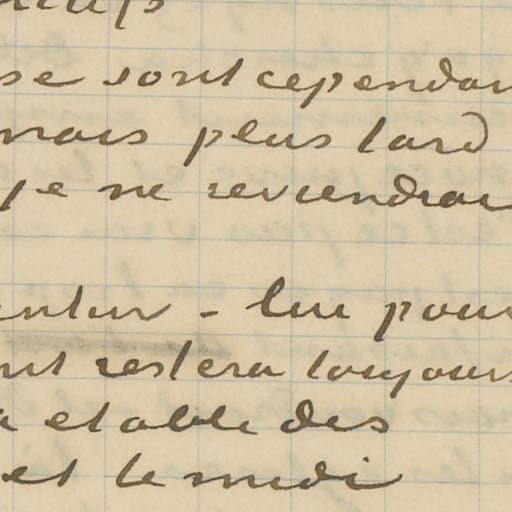 se sont cependan
mais plus tard
je ne reviendrai
enter - lui pour
ent restera toujours
a etable des
et le midi